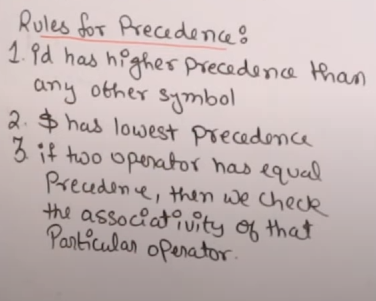 Rules for Precedence:
1. id has higher precedence than
any other symbol
2. $ has lowest precedence
3. if two operator has equal
Precedence, then we check
the associativity of that
Particular operator.